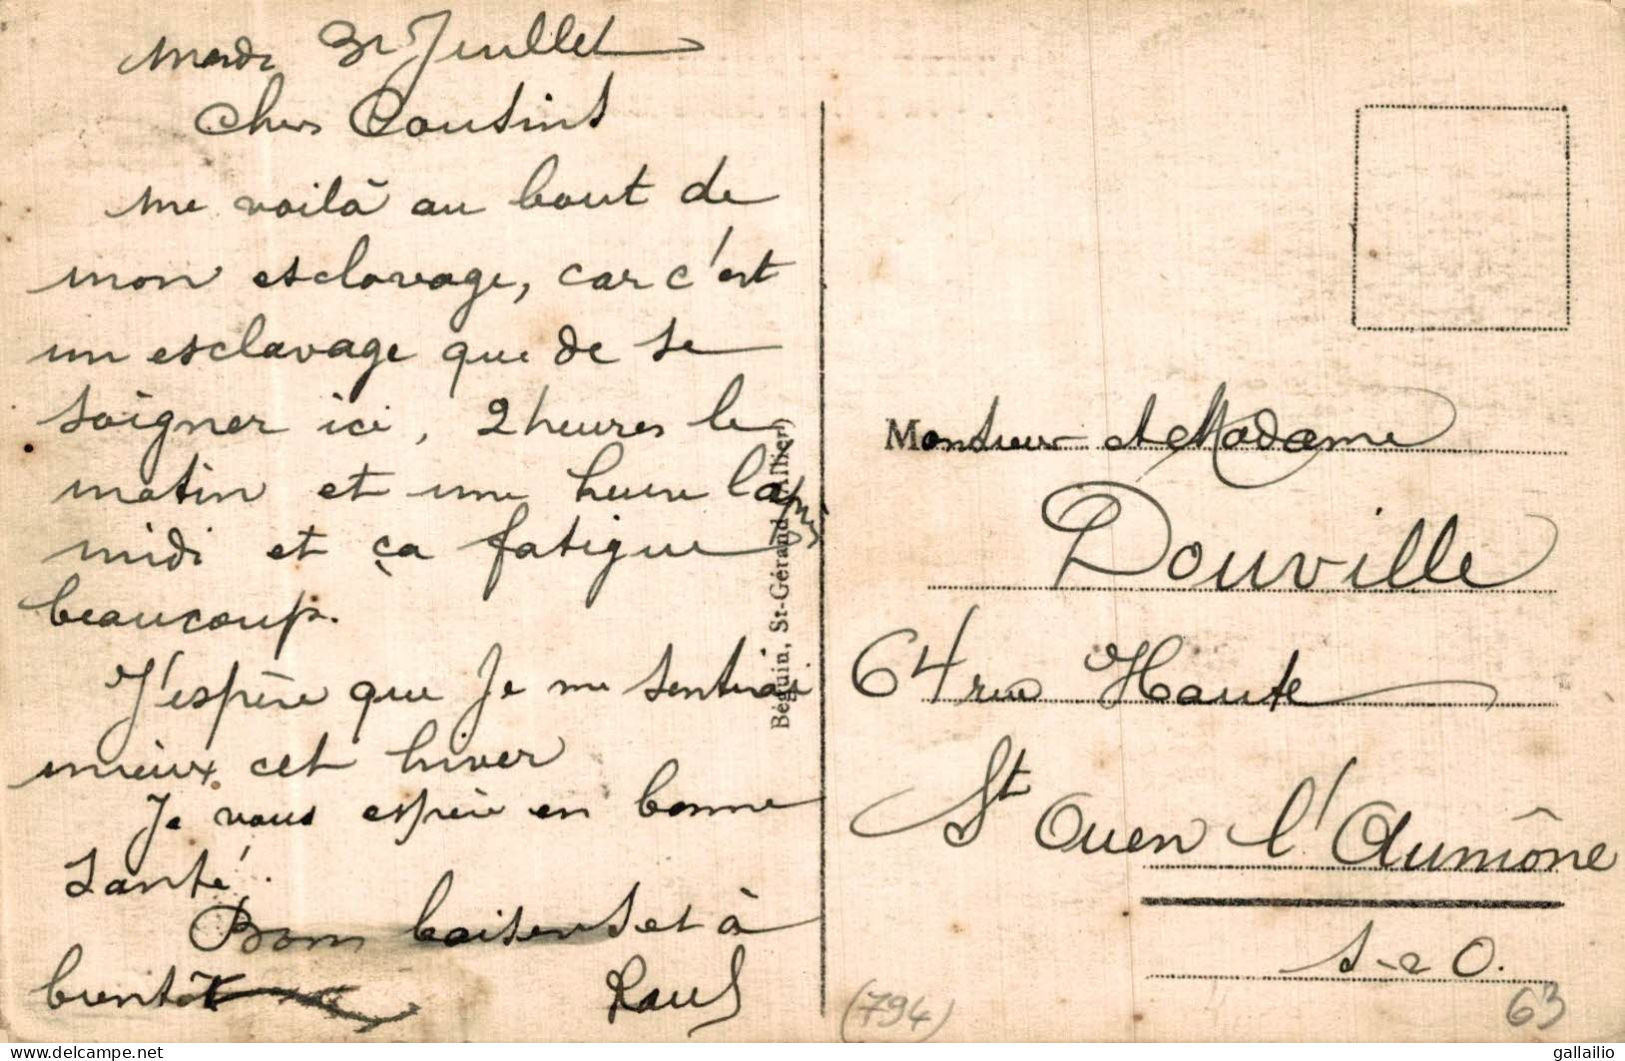 Mardi 31 Juillet
Chers Cousins
me voilà au bout de
mon esclavage, car c'est
un esclavage que de se
soigner ici, 2 heures le
matin et une heure l'après
midi et ça fatigue
beaucoup.
J'espère que je me sentirai
mieux cet hiver
Je vous espère en bonne
santé.
Bons baisers et à
bientôt
Raul
Béguin, St-Gérand (Allier)
Monsieur et Madame
Douville
64 rue Haute
St Ouen l'Aumône
S-e O.
(794)
63
gallailio